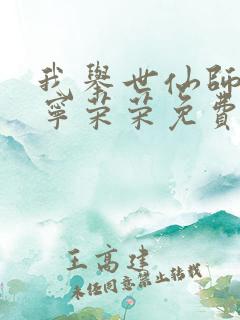 我举世仙師
寧荣荣免費
王高建
未经同意禁止转载